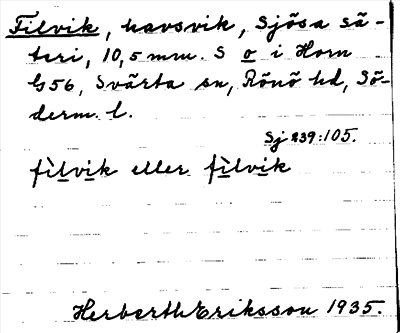 Filvik, havsvik, Sjösa sä-
teri, 10,5 mm. S o i Horn
G56, Svärta sn, Rönö hd, Sö-
derm. l.
Sj 239:105.
fìlvik eller fìlvik
Herberth Eriksson 1935.